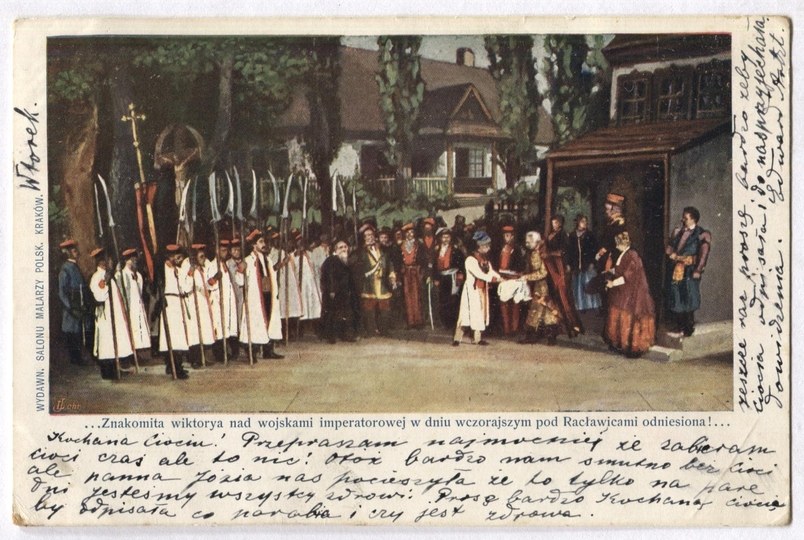 Wtorek.
WYDAWN. SALONU MALARZY POLSK. KRAKÓW.
...Znakomita wiktorya nad wojskami imperatorowej w dniu wczorajszym pod Racławicami odniesiona!...
Kochana Ciociu! Przepraszam najmocniej że zabieram
cioci czas ale to nic! Otóż bardzo nam smutno bez Cioci
ale panna Józia nas pocieszyła że to tylko na parę
dni jesteśmy wszyscy zdrowi. Proszę bardzo Kochaną ciocię
by odpisała co porabia i czy jest zdrowa.
jeszcze raz proszę bardzo żeby
ciocia odpisała i do nas przyjechała
Dowidzenia. Edward